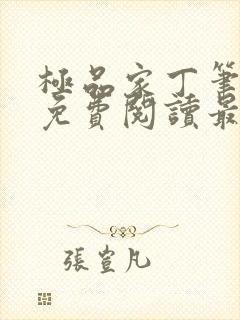 極品家丁筆
免費閱讀最
張萱凡